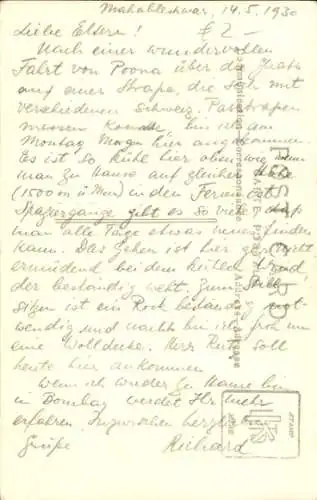 Mahableshwar, 14.5.1930
Liebe Eltern! £2-
Nach einer wundervollen
Fahrt von Poona über die Ghats
auf einer Strasse, die sich mit
verschiedenen schweiz. Passstrassen
messen konnte, bin ich am
Montag Morgen hier angekommen.
Es ist so kühl hier oben wie wenn
man zu Hause auf gleicher Höhe
(1500 m ü Meer) in den Ferien ist.
Spaziergänge gibt es so viele dass
man alle Tage etwas neues finden
kann. Das Gehen ist hier gar nicht
ermüdend bei dem kühlen Wind,
der beständig weht. Zum Still-
sitzen ist ein Rock beständig not-
wendig und nachts bin ich froh um
eine Wolldecke. Herr soll
heute hier ankommen.
Wenn ich wieder zu Hause bin
in Bombay werdet Ihr mehr
erfahren. Inzwischen herzliche
Grüsse Richard
POST CARD
CARTE POSTALE
STAMP
HERE